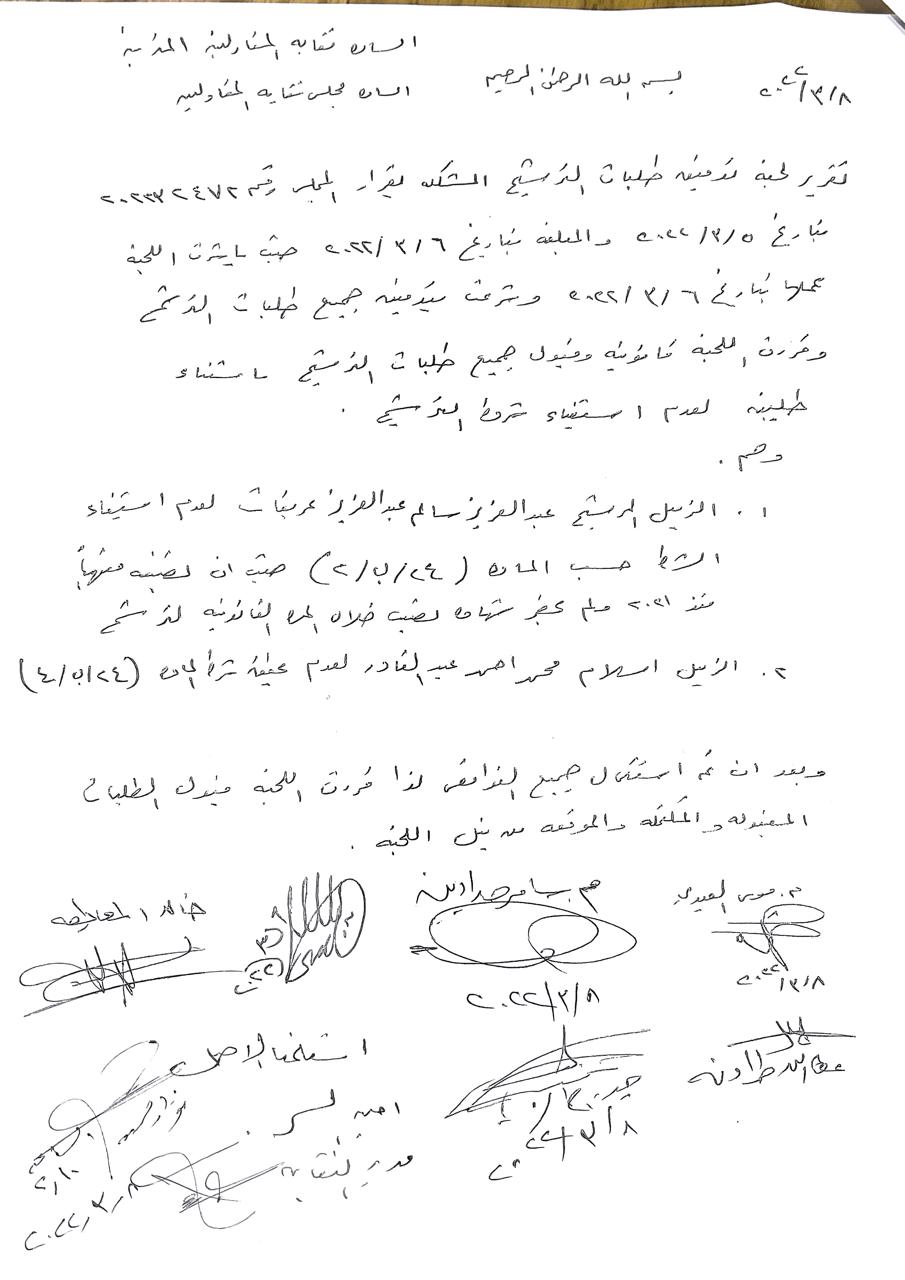 الساده نقابه المقاولين المحترمين
٢٠٢٢/٣/٨ بسم الله الرحمن الرحيم الساده مجلس نقابه المقاولين
تقرير لجنة تدقيق طلبات الترشيح المشكله بقرار المجلس رقم ٢٠٢٣٣٢٤٧٢
بتاريخ ٢٠٢٢/٣/٥ والمبلغه بتاريخ ٢٠٢٢/٣/٦ حيث باشرت اللجنة
عملها بتاريخ ٢٠٢٢/٣/٦ وشرعت بتدقيق جميع طلبات الترشح
وقررت اللجنة قانونية وقبول جميع طلبات الترشيح باستثناء
طلبين لعدم استيفاء شروط الترشيح .
وهم .
١. الزميل المرشح عبدالعزيز سالم عبدالعزيز عريقات لعدم استيفاء
الشرط حسب الماده (٢٤/ب/٢) حيث ان تصنيفه منتهياً
منذ ٢٠٢١ ولم يحضر شهادة تصنيف خلال المده القانونيه للترشح
٢. الزميل اسلام محمد احمد عبدالقادر لعدم تحقيق شرط الماده (٢٤/ب/٤)
وبعد ان تم استكمال جميع النواقص لذا قررت اللجنة قبول الطلبات
المقبوله والمكتمله والموقعه من قبل اللجنة .
م. موسى العبيدي م. سامر حدادين خالد المعايطه
٢٠٢٢/٣/٨ ٢٠٢٢/٣/٨
عطاالله طراونه استلمنا الاصل
٢٠٢٢/٣/٨ امين السر
مدير النقابة
٢٠٢٢/٣/٨